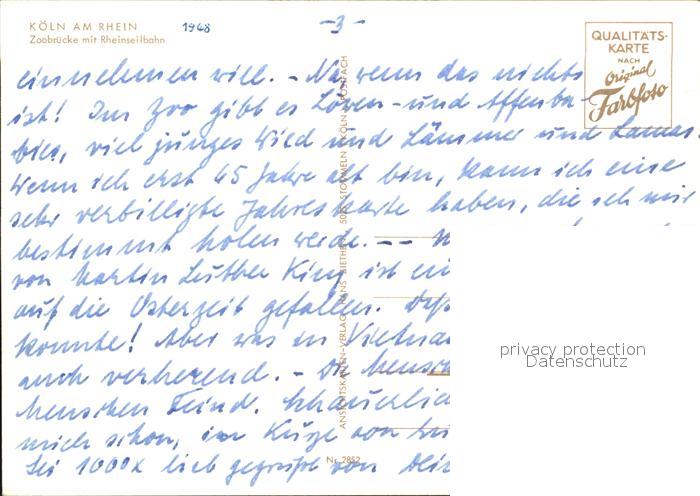 KÖLN AM RHEIN 1968
Zoobrücke mit Rheinseilbahn
- 3 -
QUALITÄTS-
KARTE
NACH
Original
Farbfoto
einnehmen will. - Na, wenn das nichts
ist! Im Zoo gibt es Löwen- und Affenba-
bies, viel junges Wild und Lämmer und Lamas.
Wenn ich erst 65 Jahre alt bin, kann ich eine
sehr verbilligte Jahreskarte haben, die ich mir
bestimmt holen werde. --
von Martin Luther King ist
auf die Osterzeit gefallen.
konnte! Aber was in Vietna
auch verheerend. - Der Mensch
Menschen Feind. Schauerlich
mich schon, in Kürze von
Sei 1000x lieb gegrüßt von
ANSICHTSKARTEN-VERLAG HANS BIETHEN, STOMMELN KÖLN POSTFACH
Nr. 2852
privacy protection
Datenschutz